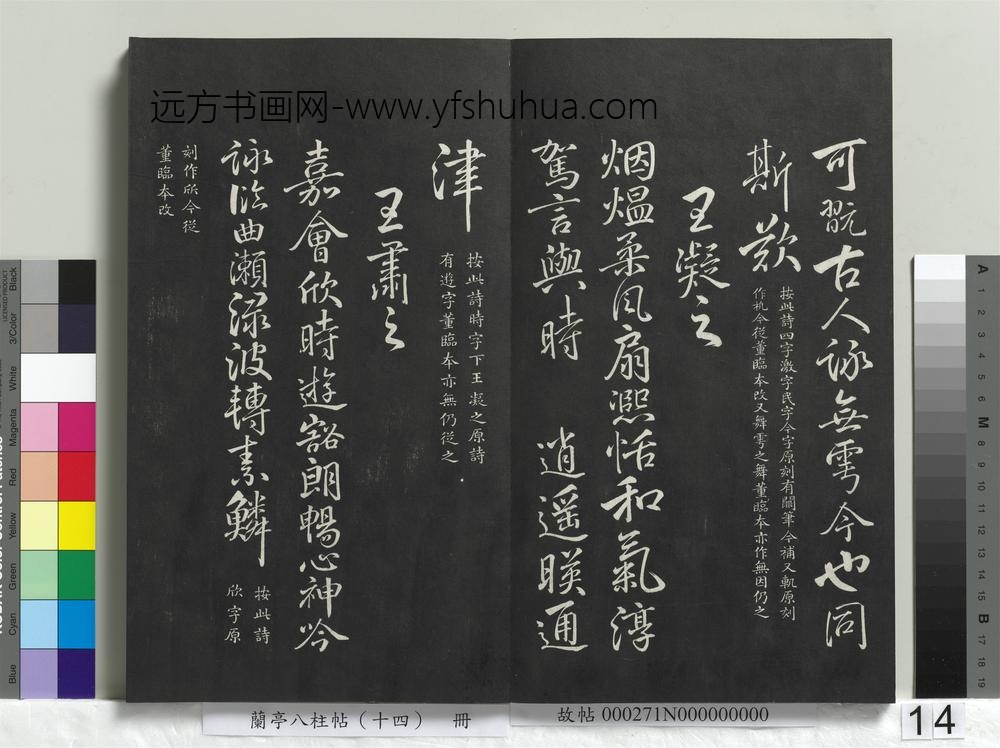 可翫古人詠無雩今也同
斯歎
按此詩四字激字民字今字原刻有闕筆今補又軏原刻
作杋今從董臨本改又舞雩之舞董臨本亦作無因仍之
王凝之
烟煴柔風扇熙恬和氣淳
駕言與時 逍遥暎通
津
按此詩時字下王凝之原詩
有遊字董臨本亦無仍從之
王肅之
嘉會欣時遊豁朗暢心神吟
詠臨曲瀨淥波轉素鱗
按此詩
欣字原
刻作㤓今從
董臨本改
远方书画网-www.yfshuhua.com
蘭亭八柱帖（十四） 冊
故帖 000271N000000000
14
Black
3/Color
White
Magenta
Red
Yellow
Green
Cyan
Blue
A
1
2
3
4
5
6
M
8
9
10
11
12
13
14
15
B
17
18
19